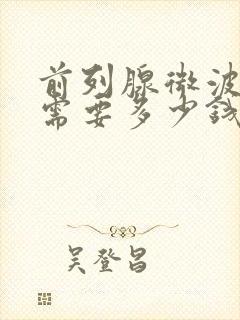 前列腺微波
需要多少钱
吴登昌